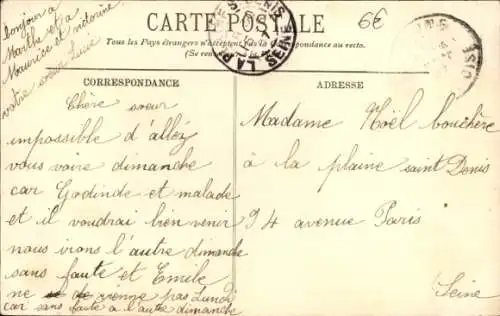 bonjour a
Marthe et a
Maurice et victorine
votre sœur Luce
CARTE POSTALE
6€
Tous les Pays étrangers n'acceptent pas la Correspondance au recto.
(Se ren
SEINE
OISE
CORRESPONDANCE
ADRESSE
Chère sœur
impossible d'allez
vous voire dimanche
car Godinde et malade
et il voudrai bien venir
nous irons l'autre dimanche
sans faute et Emile
ne de vienne pas Lundi
car sans faute a l'autre dimanche
Madame Noël bouchère
à la plaine saint Denis
94 avenue Paris
Seine